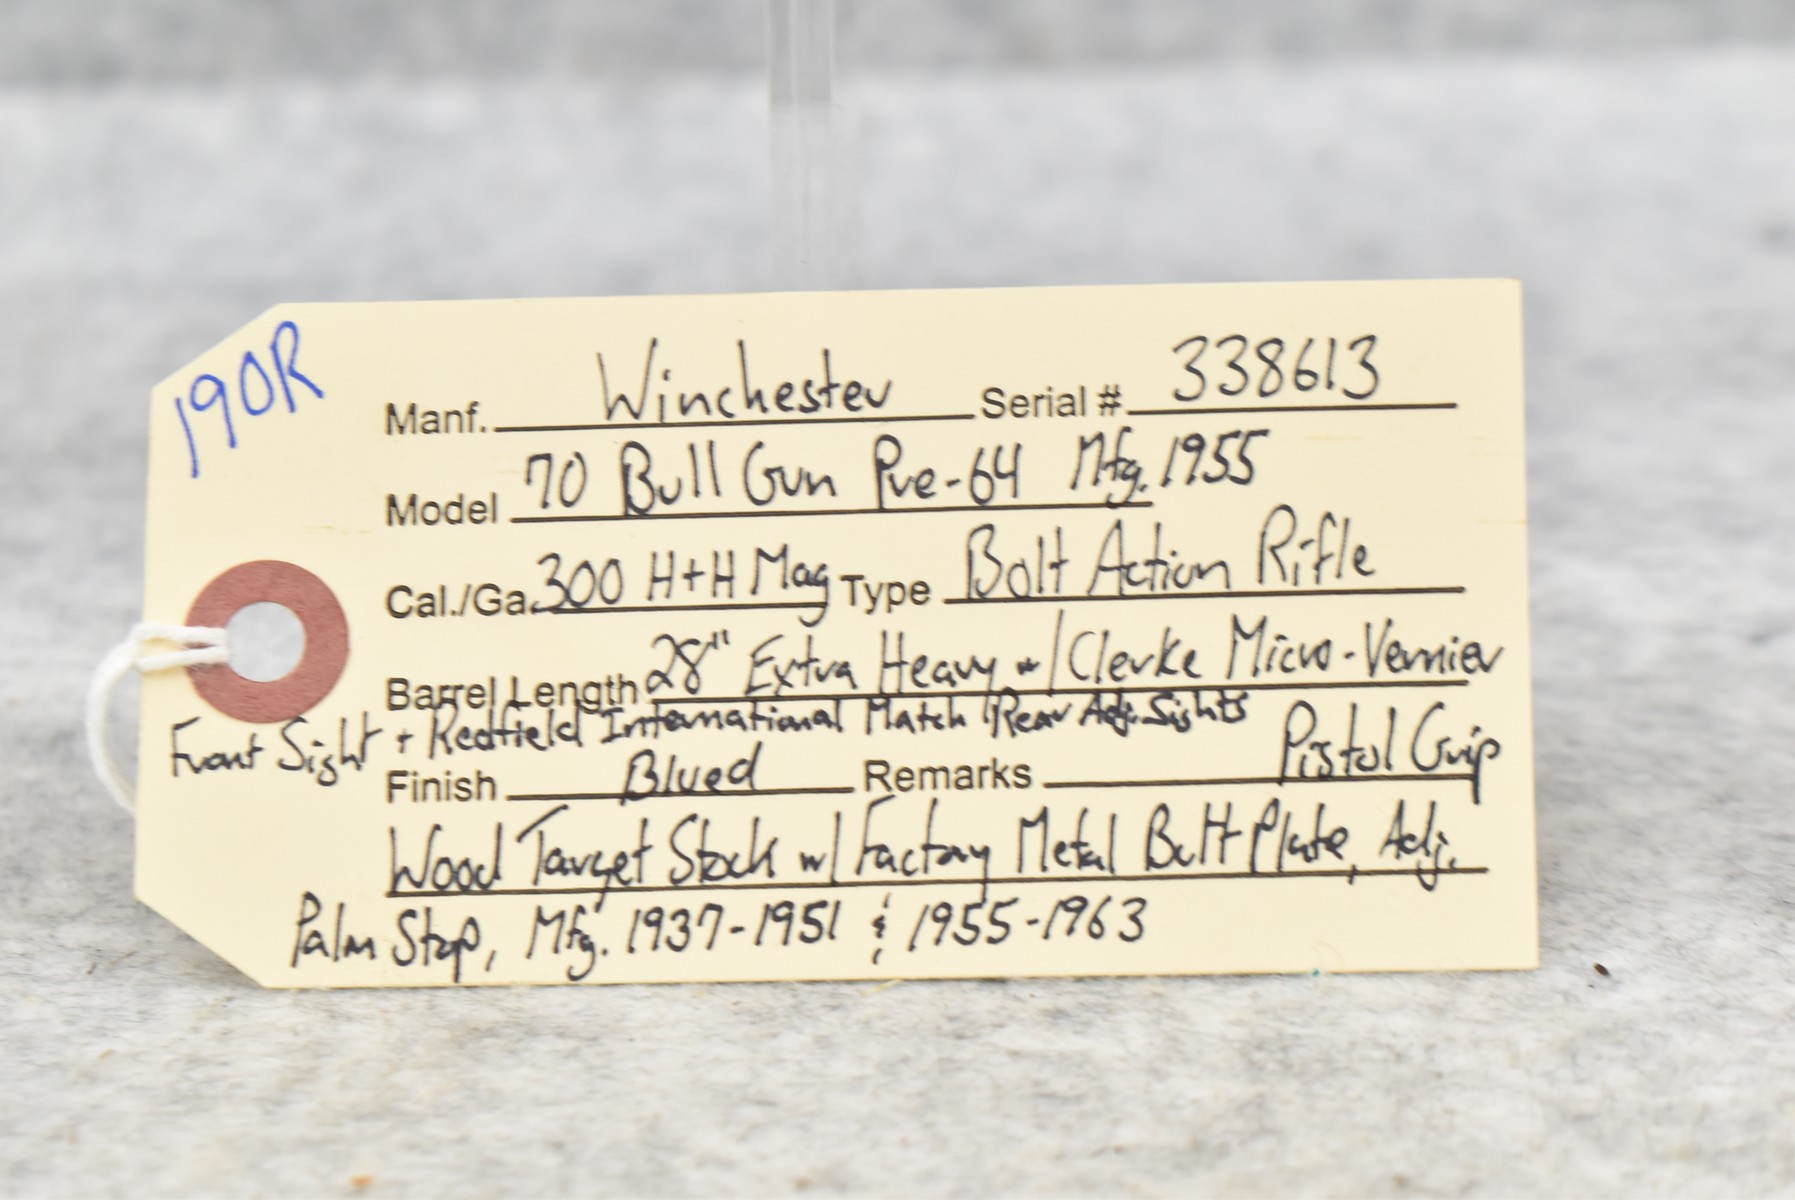 190R
Manf. Winchester Serial # 338613
Model 70 Bull Gun Pre-64 Mfg. 1955
Cal./Ga. 300 H+H Mag Type Bolt Action Rifle
Barrel Length 28" Extra Heavy w/ Clerke Micro-Vernier
Front Sight + Redfield International Match Rear Adj. Sights
Finish Blued Remarks Pistol Grip
Wood Target Stock w/ Factory Metal Butt Plate, Adj.
Palm Stop, Mfg. 1937-1951 & 1955-1963